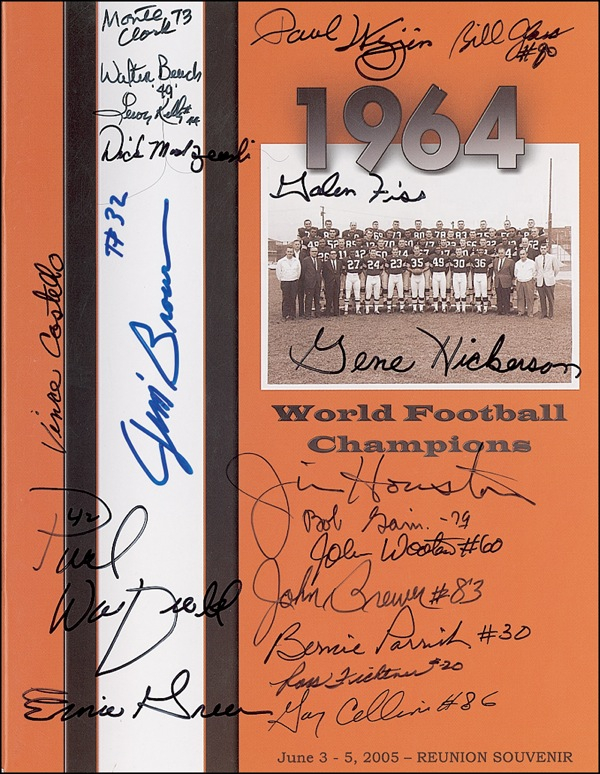 Monte
Clark 73
Walter Beach
'49'
Leroy Kelly
#44
Dick Modzelewski
#32
Jim Brown
Vince Costello
42
Paul
Warfield
Ernie Green
Paul Wiggin
Bill Glass
#80
1964
Galen Fiss
Gene Hickerson
World Football
Champions
Jim Houston
Bob Gain - 79
John Wooten #60
John Brewer #83
Bernie Parrish #30
Ross Fichtner #20
Gary Collins #86
June 3 - 5, 2005 – REUNION SOUVENIR